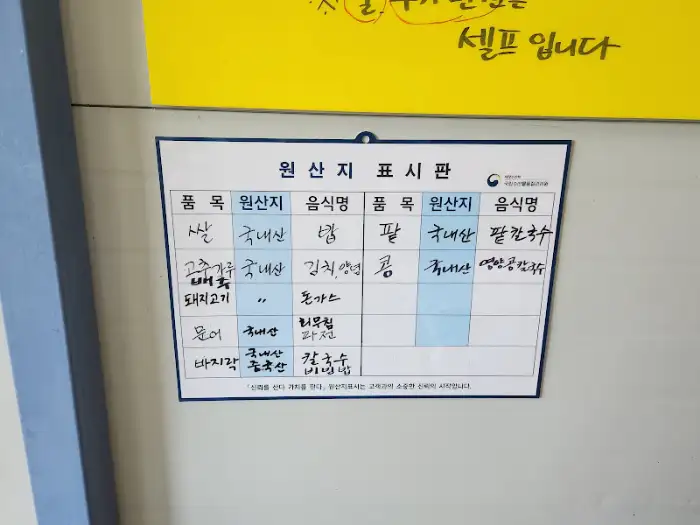 셀프 입니다
원산지 표시판
국립수산물품질관리원
품 목 원산지 음식명 품 목 원산지 음식명
쌀 국내산 밥 팥 국내산 팥칼국수
고추가루 배추 국내산 김치, 양념 콩 국내산 영양콩칼국수
돼지고기 〃 돈가스
문어 국내산 회무침 파전
바지락 국내산 중국산 칼국수 비빔밥
「신뢰를 산다 가치를 판다」 원산지표시는 고객과의 소중한 신뢰의 시작입니다.